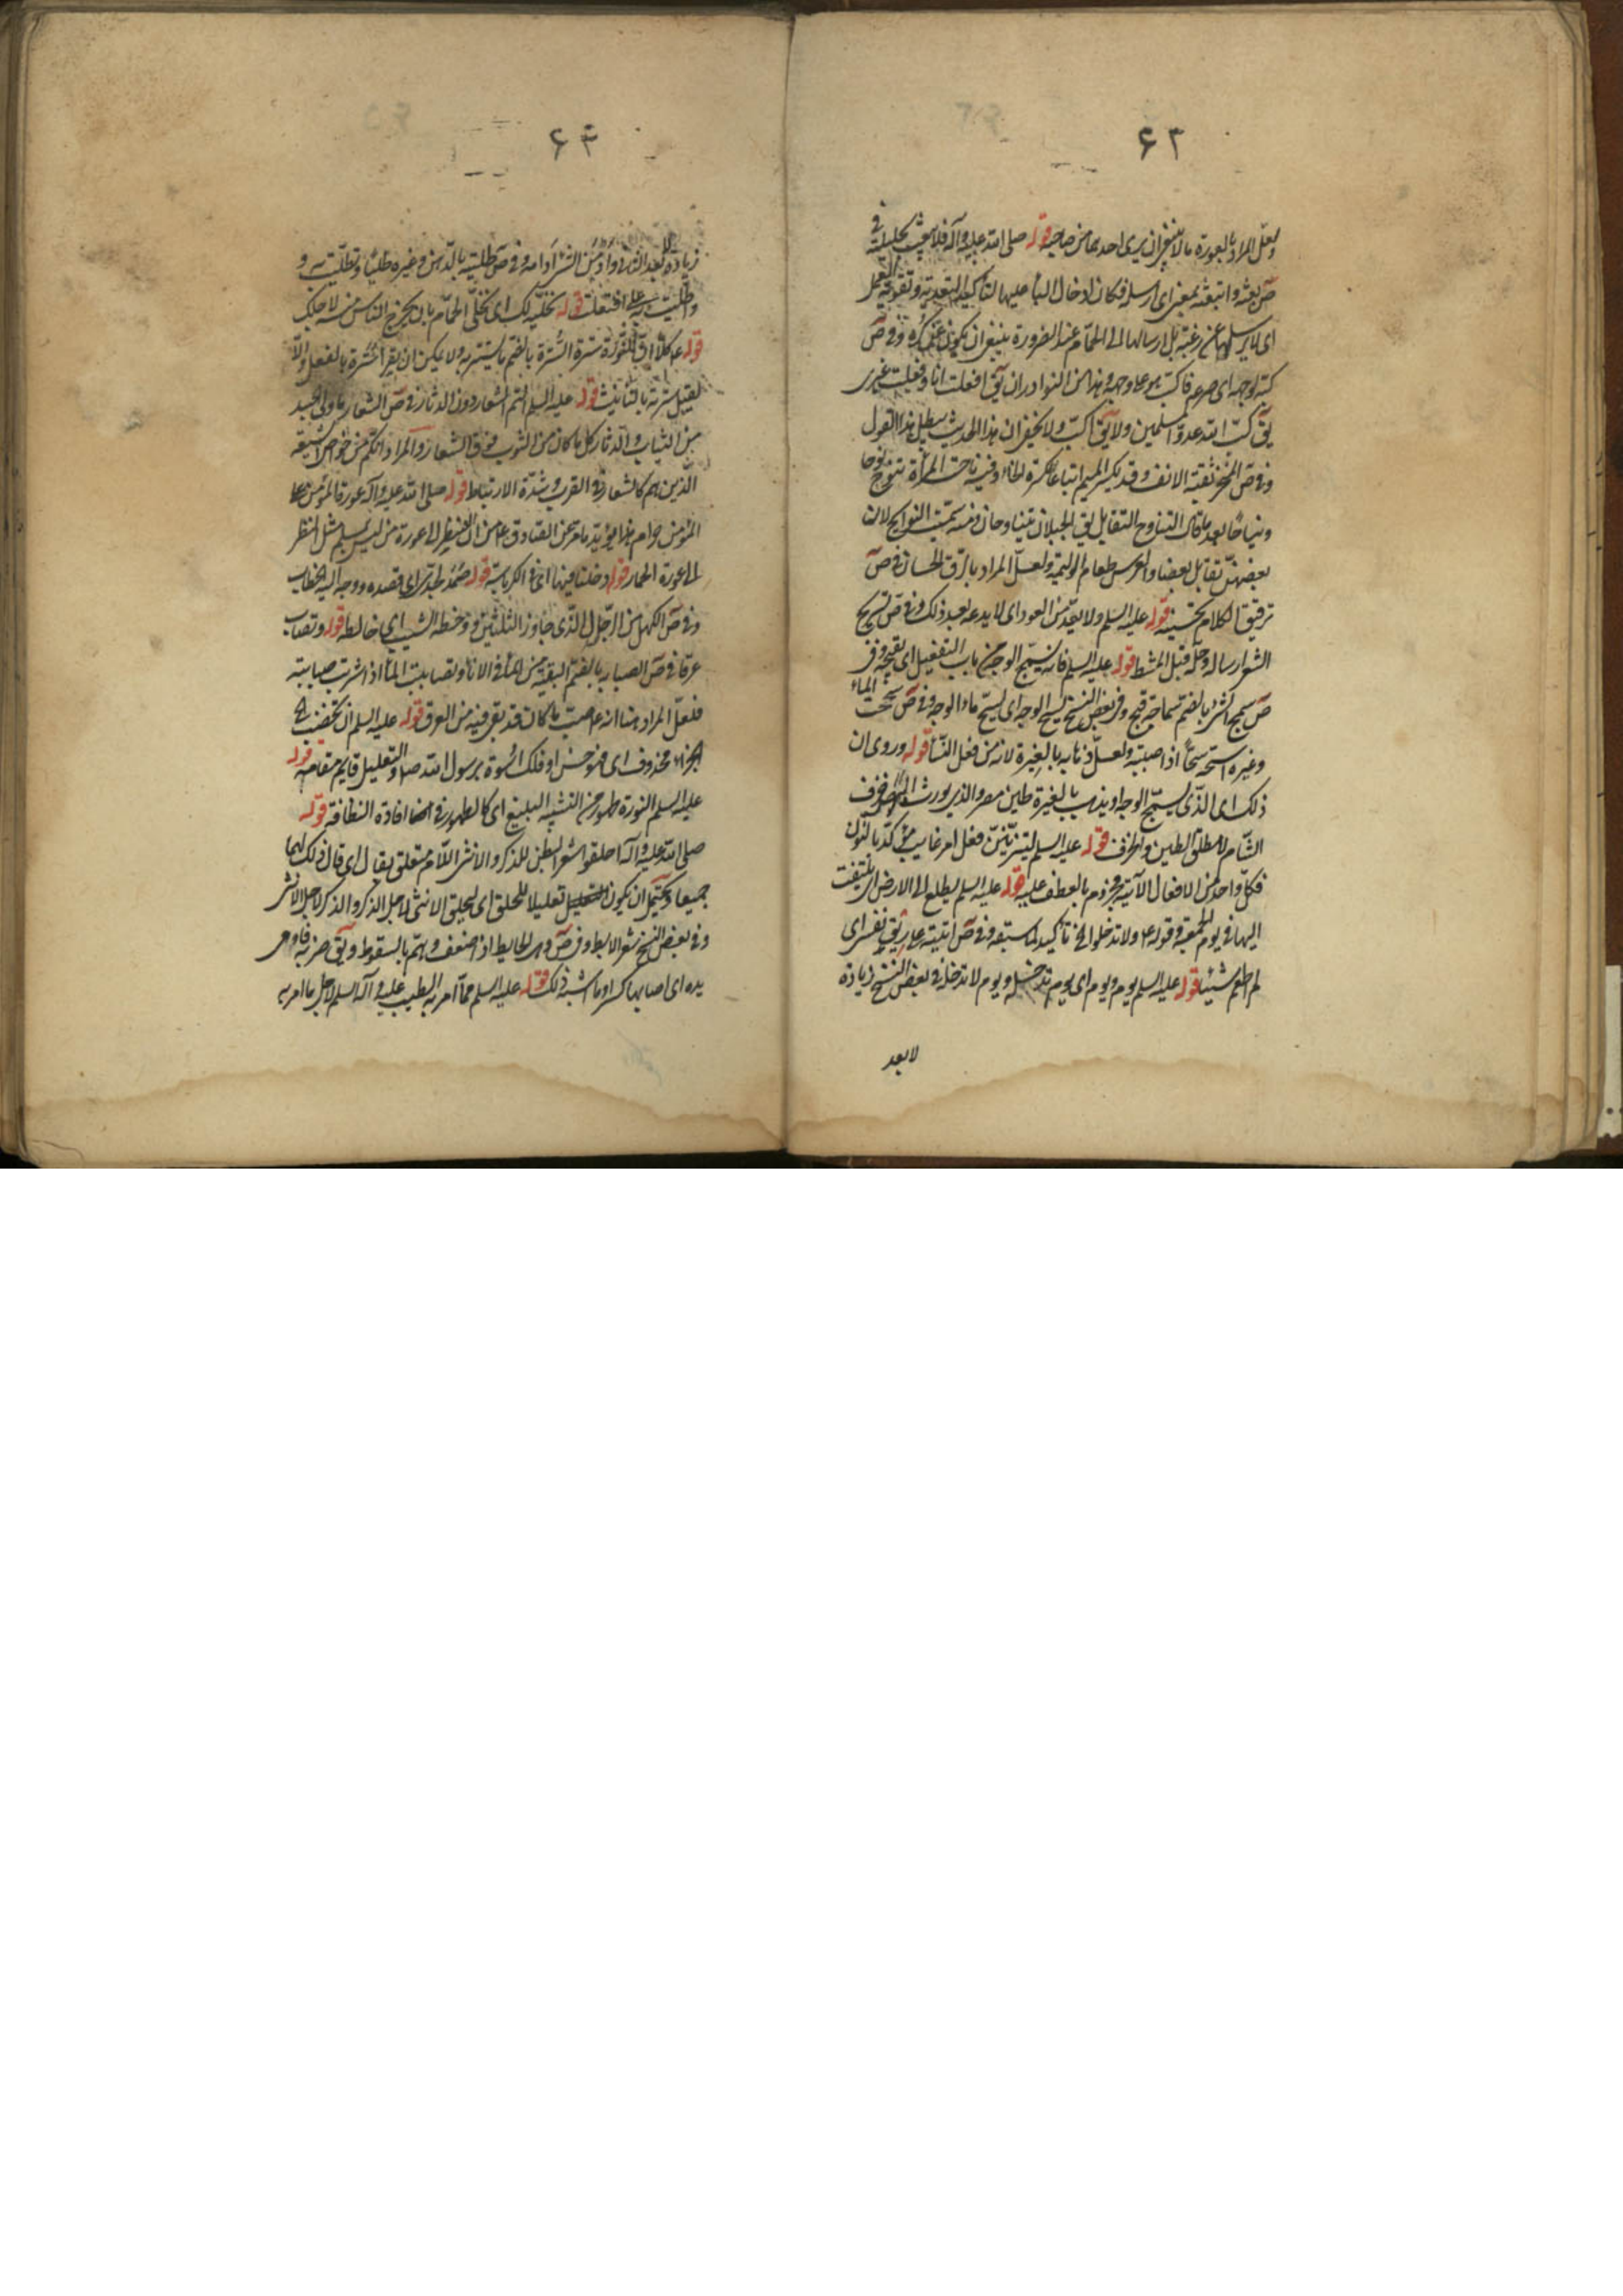 ۶۳
ولعل المراد بالعورة ما لا ينبغي ان يرى احدهما من صاحبه قوله صلى الله عليه وآله فلا يبعث بحليلته في
ص بعثه وابتعثه بمعنى اى ارسله فكان ادخال الباء عليها لتأكيد التعدية وتقوية العمل
اى لا يرسلها عن رغبة بل ارسالها الى الحمام عند الضرورة ينبغي ان يكون عن كره وفي ص
كبه لوجهه اى صرعه فاكب هو على وجهه وهذا من النوادر ان يق افعلت انا وفعلت غيرى
يق كب الله عدو المسلمين ولا يق اكب ولا يخفى ان هذا الحديث يبطل هذا القول
وفي ص المنخر ثقبة الانف وقد يكسر الميم اتباعا لكسرة الخاء وفيه ناحت المرأة تنوح نوحا
ونياحا بعد ما قال التناوح التقابل يق الجبلان يتناوحان ومنه سميت النوايح لان
بعضهن تقابل بعضا والعرس طعام الوليمة ولعل المراد بارق الحسان في ص
ترقيق الكلام تحسينه قوله عليه السلم ولا يعد من العود اى لا يدعه بعد ذلك وفي ص تسريح
الشعر ارساله وحله قبل المشط قوله عليه السلم فانه يسمج الوجه من باب التفعيل اى يقبحه وفي
ص سمج الشئ بالضم سماجة قبح وفي بعض النسخ يسيح الوجه اى يسيح ماء الوجه وفي ص سحت الماء
وغيره اسحه سحا اذا صببته ولعل ذهابه بالغيرة لانه من فعل النساء قوله وروى ان
ذلك اى الذى يسمج الوجه او يذهب بالغيرة طين مصر والذى يورث
الشام لا مطلق الطين والخزف قوله عليه السلم ليتزينن فعل امر غايب مؤكد بالنون
فكل واحد من الافعال الآتية مجزوم بالعطف عليه قوله عليه السلم يطلع الى الارض اى يلتفت
اليها في يوم الجمعة وقوله ع ولا تدخلوا الخ تأكيد لما سبقه وفي ص اتيته على ريق نفسى اى
لم اطعم شيئا قوله عليه السلم يوم ويوم اى يوم تدخله ويوم لا تدخله في بعض النسخ زيادة
لا بعد
۶۴
زيادة لا بعد وادمن الشئ ادامه وفي ص طليته بالدهن وغيره طليا وتطليت به و
واطليت به على افتعلت قوله نخليه لك اى نخلى الحمام بان يخرج الناس منه لاجلك
قوله ع كلا ان النورة سترة السترة بالضم ما يستر به ولا يمكن ان يقرأ سترة بالفعل والا
لقيل سترته بالتأنيث قوله عليه السلم انتم الشعار دون الدثار في ص الشعار ما ولى الجسد
من الثياب والدثار كل ما كان من الثوب فوق الشعار والمراد انكم من خواص الشيعة
الذين هم كالشعار في القرب وشدة الارتباط قوله صلى الله عليه وآله عورة المؤمن على
المؤمن حرام هذا يؤيد ما مر عن الصادق ع من ان النظر الى عورة من ليس بمسلم مثل النظر
الى عورة الحمار قوله دخلنا فيها اى في الكرباسة قوله صمد لجدى اى قصده ووجه اليه الخطاب
وفي ص الكهل من الرجال الذى جاوز الثلثين ووخطه الشيب اى خالطه قوله وتصاب
عرقا في ص الصبابة بالضم البقية من الماء في الاناء وتصاببت الماء اذا شربت صبابته
فلعل المراد هنا انه ع صب ما كان قد بقى فيه من العرق قوله عليه السلم ان تخضب الخ
الجزاء محذوف اى فهو حسن او فلك اسوة برسول الله ص والتعليل قايم مقامه قوله
عليه السلم النورة طهور من التشبيه البليغ اى كالطهور في افادة النظافة قوله
صلى الله عليه وآله احلقوا شعر البطن للذكر والانثى اللام متعلق بقال اى قال ذلك لهما
جميعا ويحتمل ان يكون تعليلا للحلق اى ليحلق الانثى لاجل الذكر والذكر لاجل الانثى
وفي بعض النسخ شعر الابط وفي ص وهى الحايط اذا ضعف وهم بالسقوط ويق ضربه فاوهى
يده اى اصابها كسر او ما اشبه ذلك قوله عليه السلم مما امر به الطيب عليه وآله السلم لاجل ما امر به